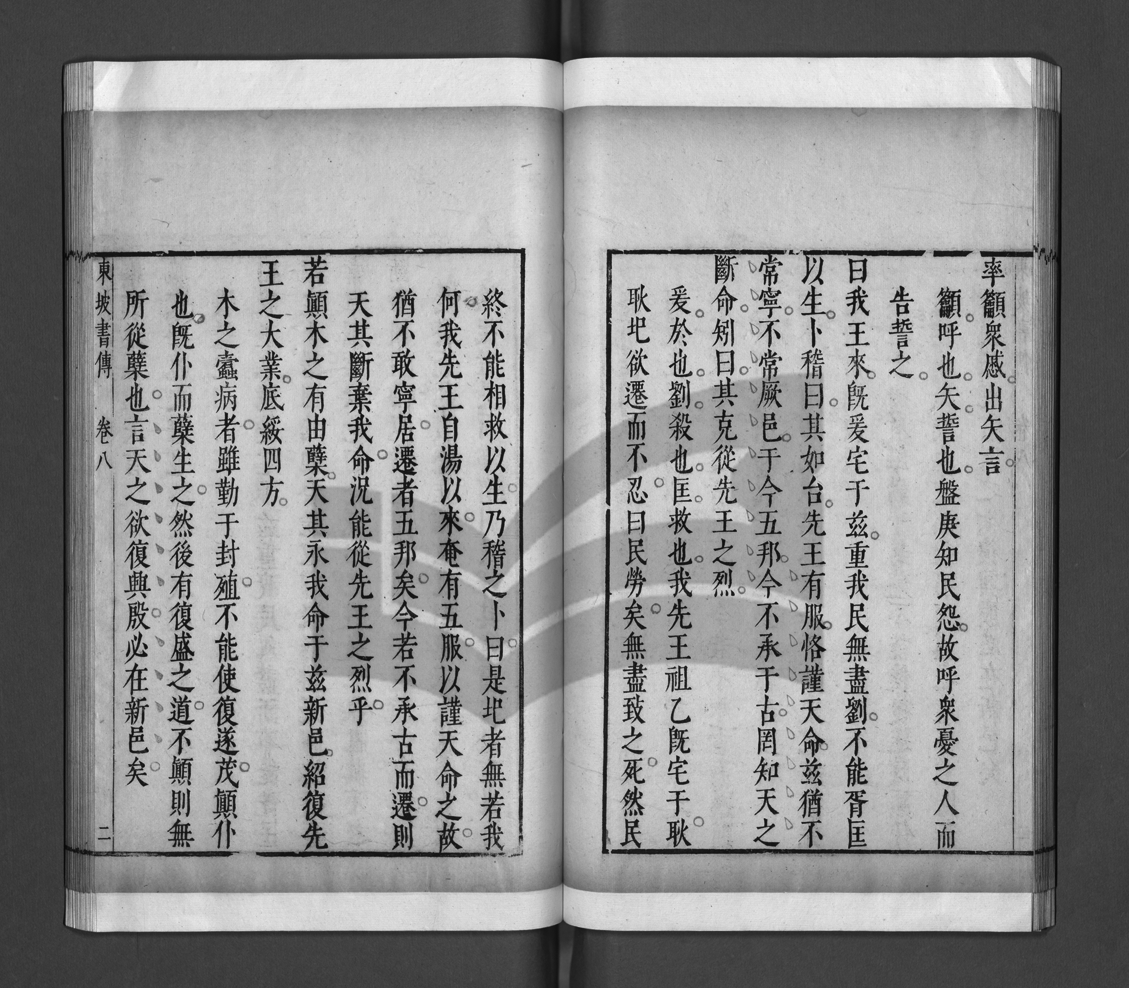 率籲衆慼出矢言
籲呼也矢誓也盤庚知民怨故呼衆憂之人而
告誓之
曰我王來旣爰宅于兹重我民無盡劉不能胥匡
以生卜稽曰其如台先王有服恪謹天命兹猶不
常寧不常厥邑于今五邦今不承于古罔知天之
斷命矧曰其克從先王之烈
爰於也劉殺也匡救也我先王祖乙旣宅于耿
耿圯欲遷而不忍曰民勞矣無盡致之死然民
終不能相救以生乃稽之卜曰是圯者無若我
何我先王自湯以來奄有五服以謹天命之故
猶不敢寧居遷者五邦矣今若不承古而遷則
天其斷棄我命況能從先王之烈乎
若顚木之有由蘖天其永我命于兹新邑紹復先
王之大業底綏四方
木之蠹病者雖勤于封殖不能使復遂茂顚仆
也旣仆而蘖生之然後有復盛之道不顚則無
所從蘖也言天之欲復興殷必在新邑矣
東坡書傳 卷八 二